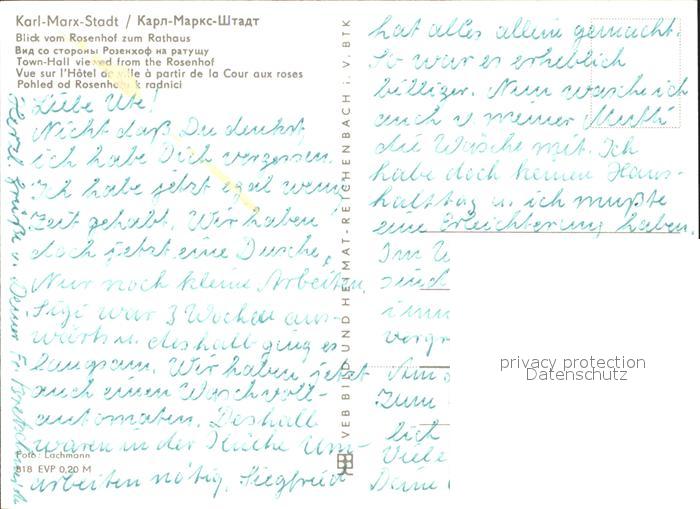 Karl-Marx-Stadt / Карл-Маркс-Штадт
Blick vom Rosenhof zum Rathaus
Вид со стороны Розенхоф на ратушу
Town-Hall viewed from the Rosenhof
Vue sur l'Hôtel de ville à partir de la Cour aux roses
Pohled od Rosenhof k radnici
Liebe Ute!
Nicht daß Du denkst,
ich habe Dich vergessen.
Ich habe jetzt egal wenig
Zeit gehabt. Wir haben
doch jetzt eine Dusche,
Nur noch kleine Arbeiten.
Sigi war 3 Wochen aus-
wärts u. deshalb ging es
langsam. Wir haben jetzt
auch einen Waschvoll-
automaten. Deshalb
waren in der Küche Um-
arbeiten nötig. Siegfried
hat alles allein gemacht.
So war es erheblich
billiger. Nun wasche ich
auch v. meiner Mutti
die Wäsche mit. Ich
habe doch keinen Haus-
haltstag u. ich mußte
eine Erleichterung haben.
Im
sind
imm
vergr
Am
Zum
lich
Viele
Deine
Herzl. Grüße v. Deiner Fr.
VEB BILD UND HEIMAT-REICHENBACH i. V. BTK
Foto: Lachmann
818 EVP 0,20 M
privacy protection
Datenschutz